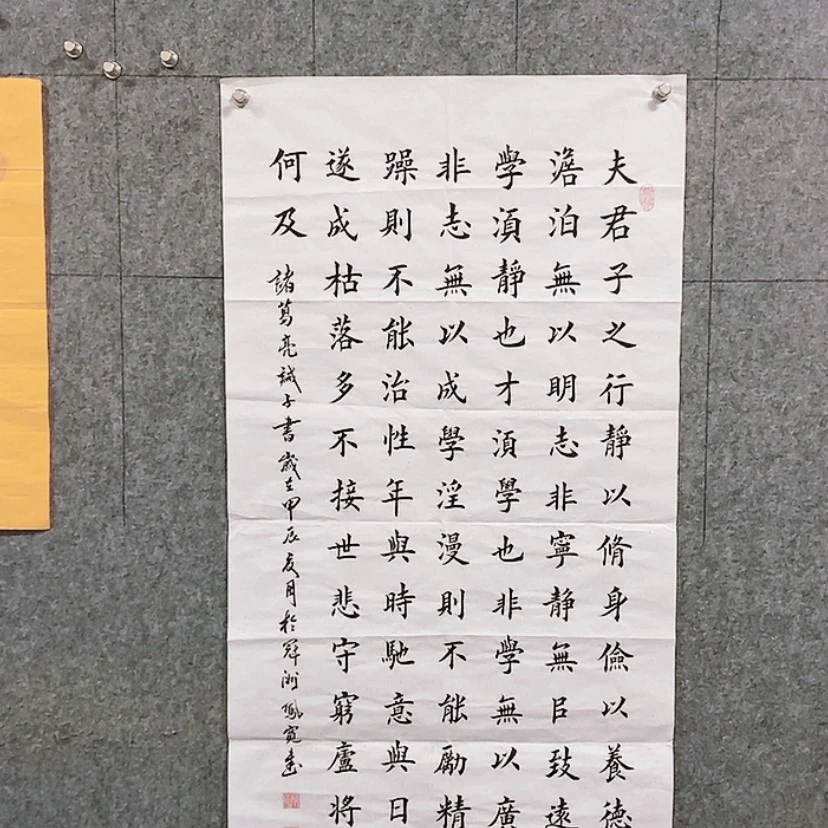 夫君子之行靜以脩身儉以養德
澹泊無以明志非寧靜無㠯致遠
學湏靜也才湏學也非學無以廣
非志無以成學淫漫則不能勵精
躁則不能治性年與時馳意與日
遂成枯落多不接世悲守窮廬將
何及
諸葛亮誡子書歲在甲辰夏月於